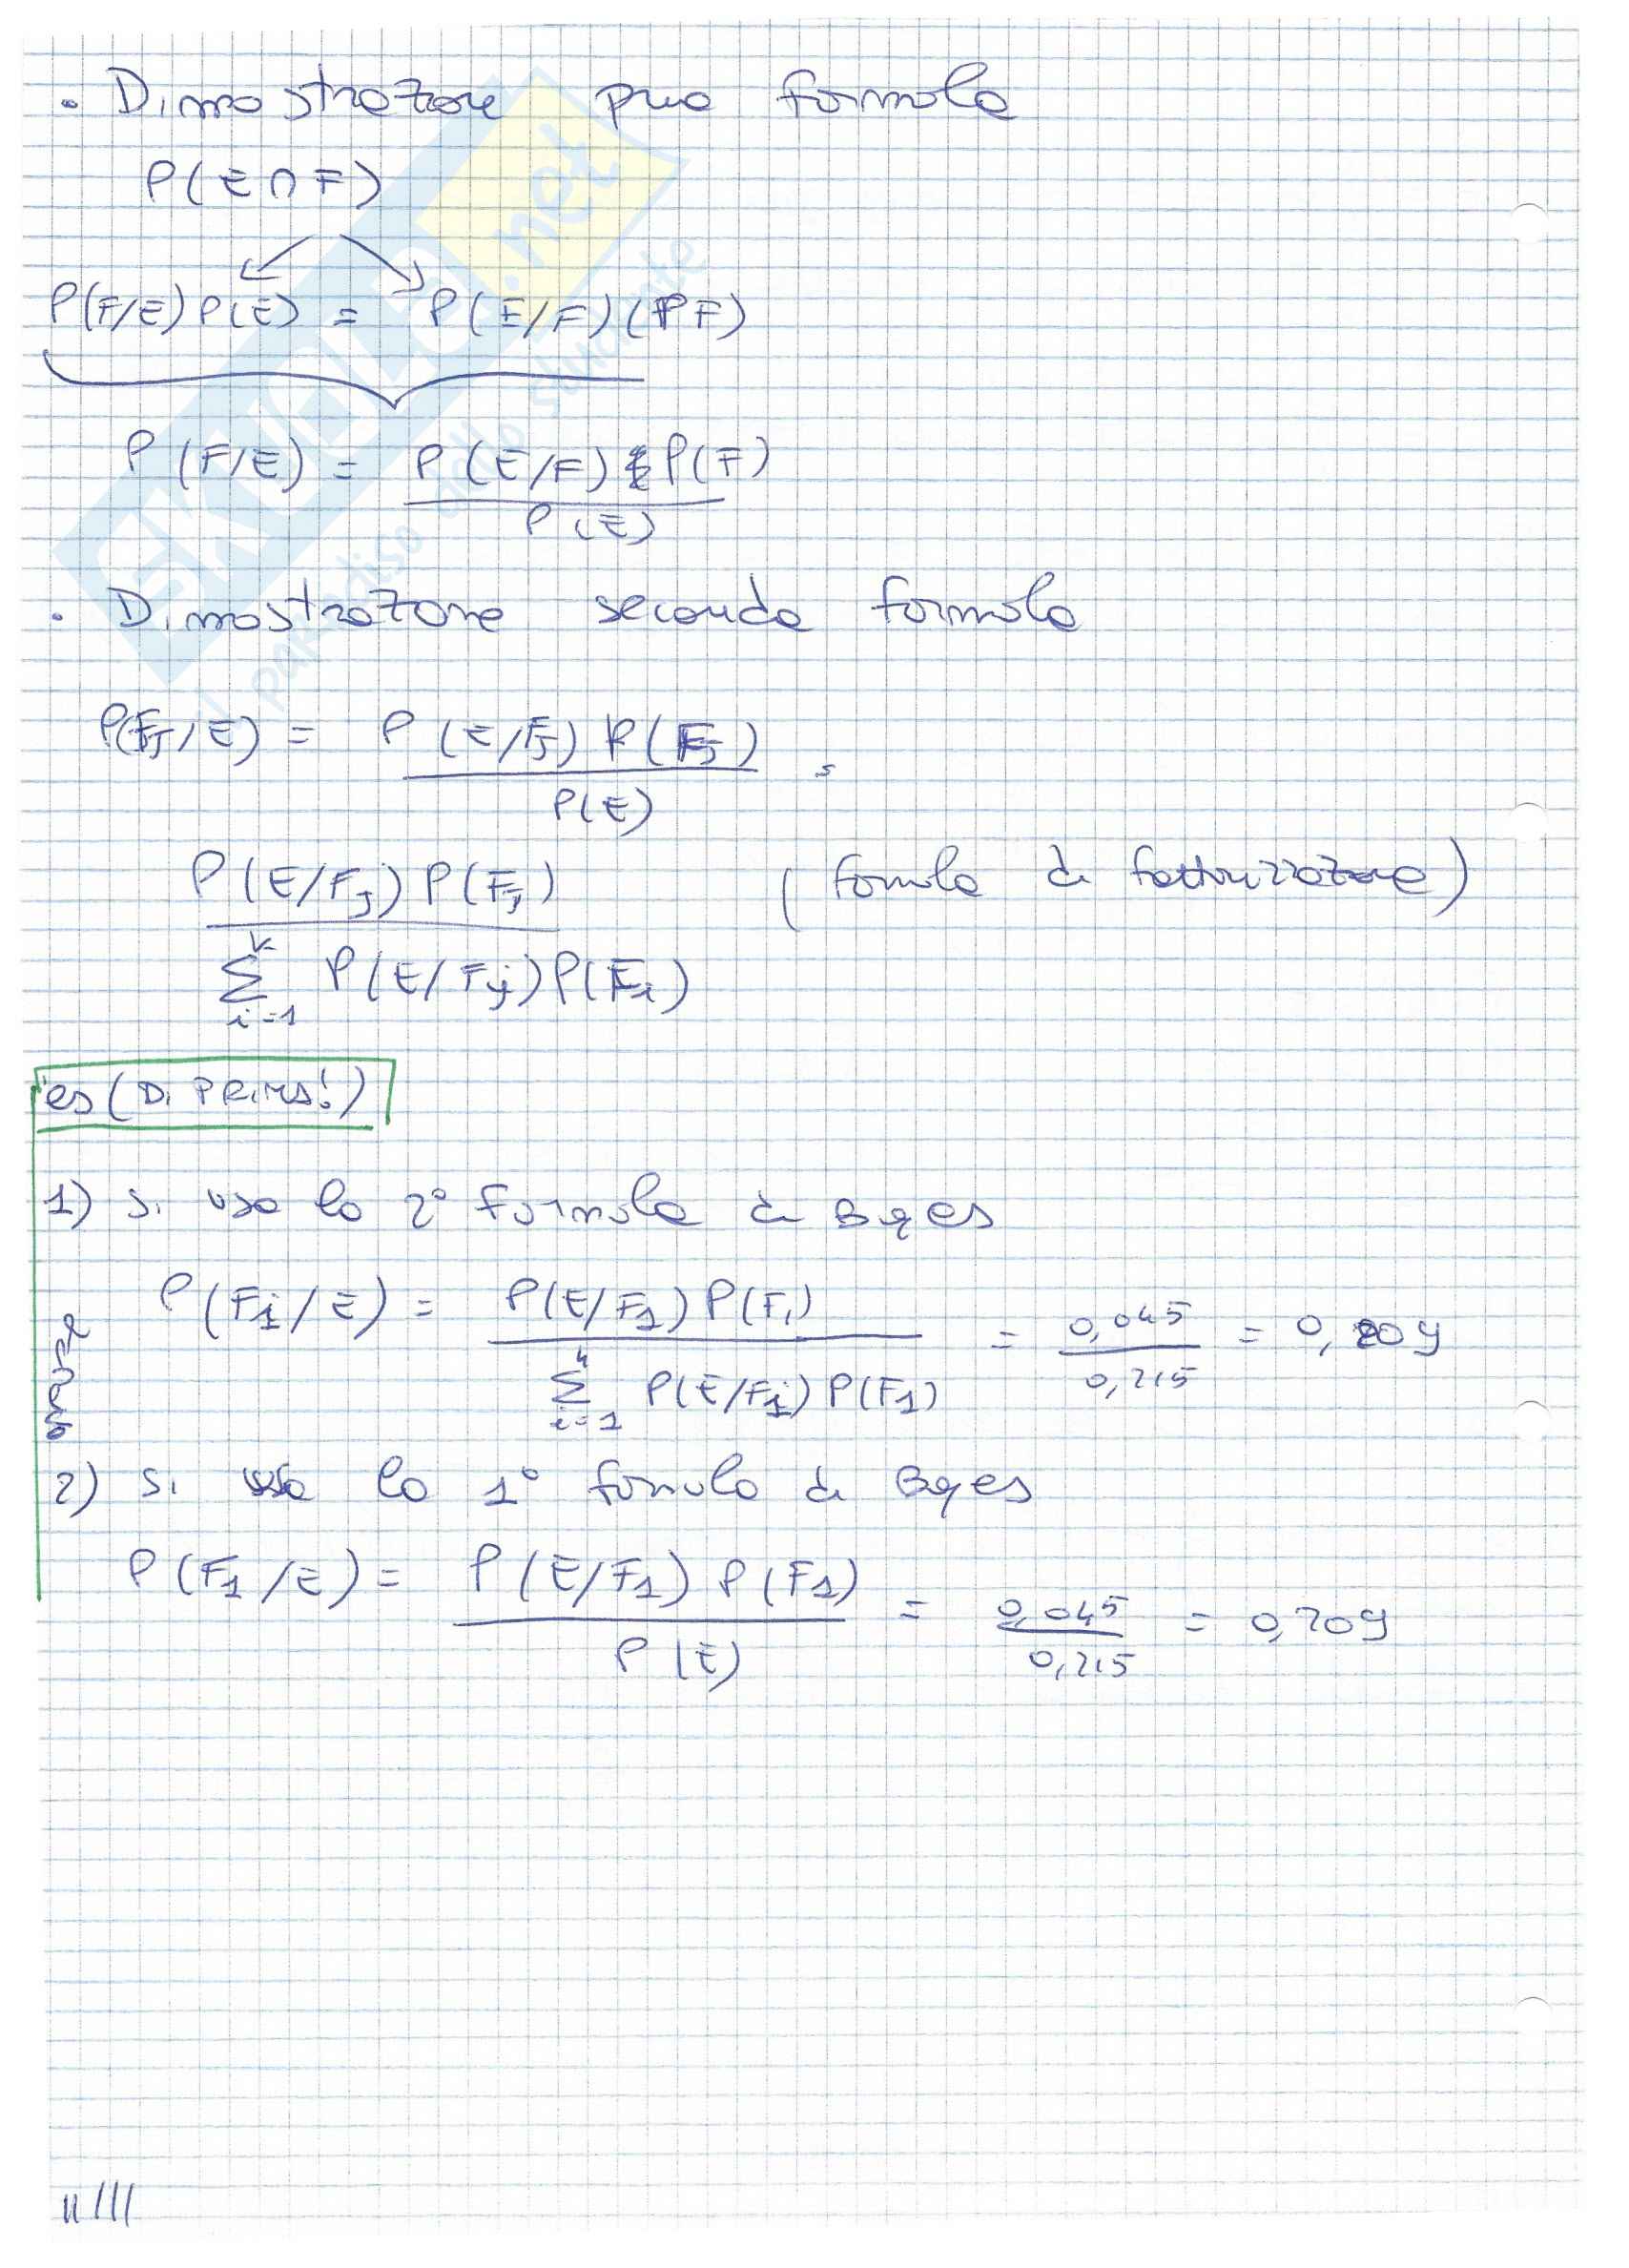 . Dimostrazione prima formula
P(E∩F)
P(F/E)P(E) = P(E/F)(PF)
P(F/E) = P(E/F) P(F)
P(E)
. Dimostrazione seconda formula
P(Fj/E) = P(E/Fj) P(Fj) =
P(E)
P(E/Fj) P(Fj) (formula di fattorizzazione)
k
Σ P(E/Fj)P(Fi)
i=1
es (Di PRIMA!)
1) Si usa la 2° formula di Bayes
P(Fi/E) = P(E/F1) P(F1) = 0,045 = 0,209
4
Σ P(E/Fi) P(F1) 0,215
i=1
2) Si usa la 1° formula di Bayes
P(F1/E) = P(E/F1) P(F1) = 0,045 = 0,209
P(E) 0,215
SKUOLA.net
il paradiso dello studente